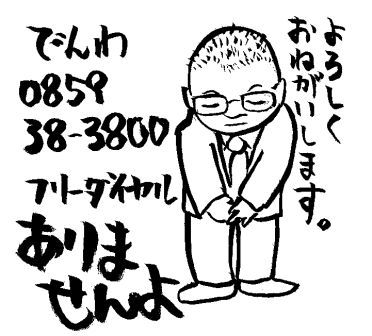 でんわ
0859
38-3800
フリーダイヤル
ありま
せんよ
よろしく
おねがいします。